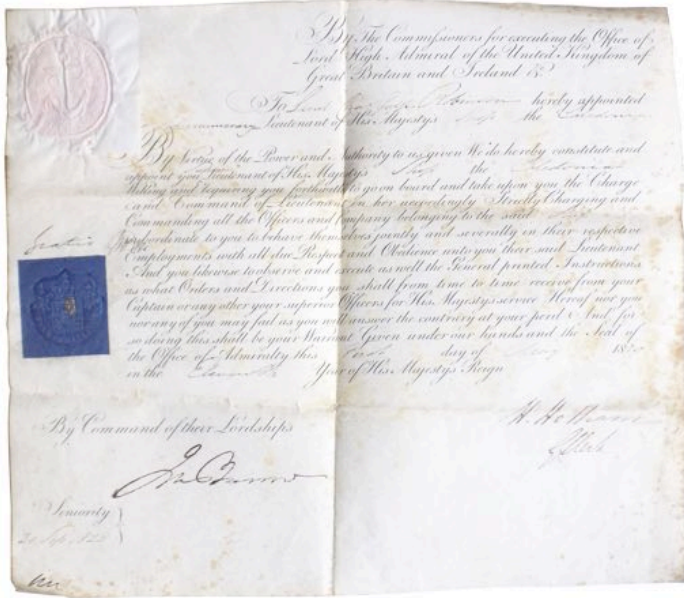 By The Commissioners for executing the Office of
Lord High Admiral of the United Kingdom of
Great Britain and Ireland &c.
To Lieut Robinson hereby appointed
Lieutenant of His Majesty's Ship the
By Virtue of the Power and Authority to us given We do hereby constitute and
appoint you Lieutenant of His Majesty's Ship the
Willing and requiring you forthwith to go on board and take upon you the Charge
and Command of Lieutenant in her accordingly Strictly Charging and
Commanding all the Officers and Company belonging to the said Ship
subordinate to you to behave themselves jointly and severally in their respective
Employments with all due Respect and Obedience unto you their said Lieutenant
And you likewise to observe and execute as well the General printed Instructions
as what Orders and Directions you shall from time to time receive from your
Captain or any other your superior Officers for His Majestys service Hereof nor you
nor any of you may fail as you will answer the contrary at your peril And for
so doing this shall be your Warrant Given under our hands and the Seal of
the Office of Admiralty this day of
in the Year of His Majestys Reign
Gratis
By Command of their Lordships
Jn Barrow
H. Hotham
G Clerk
Seniority